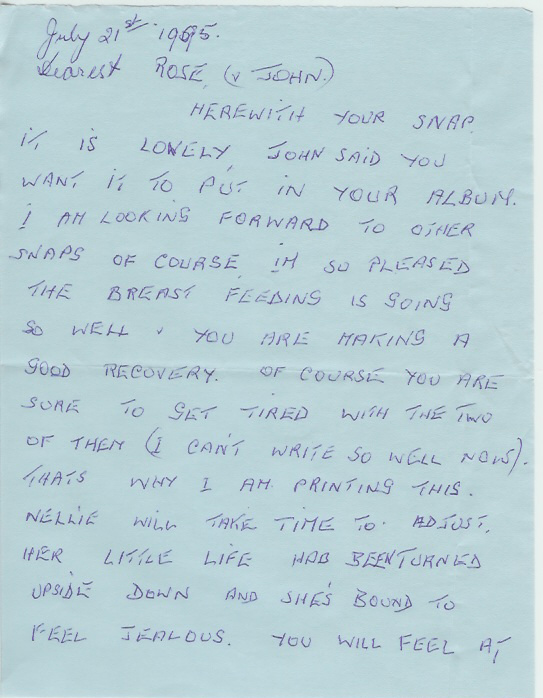 July 21st 1995.
Dearest ROSE, (& JOHN.)
HEREWITH YOUR SNAP.
IT IS LOVELY, JOHN SAID YOU
WANT IT TO PUT IN YOUR ALBUM.
I AM LOOKING FORWARD TO OTHER
SNAPS OF COURSE. IM SO PLEASED
THE BREAST FEEDING IS GOING
SO WELL & YOU ARE MAKING A
GOOD RECOVERY. OF COURSE YOU ARE
SURE TO GET TIRED WITH THE TWO
OF THEM (I CAN'T WRITE SO WELL NOW).
THATS WHY I AM PRINTING THIS.
NELLIE WILL TAKE TIME TO ADJUST.
HER LITTLE LIFE HAS BEEN TURNED
UPSIDE DOWN AND SHE'S BOUND TO
FEEL JEALOUS. YOU WILL FEEL AT